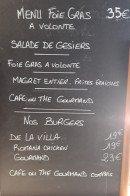 MENU FOIE GRAS 35€
A VOLONTE
SALADE DE GESIERS
FOIE GRAS A VOLONTE
MAGRET ENTIER. FRITES FRAICHES
CAFE OU THE GOURMAND
NOS BURGERS
DE LA VILLA 19€
ROMANA CHICKEN 19€
GOURMAND 23€
CAFE OU THE GOURMAND COMPRIS